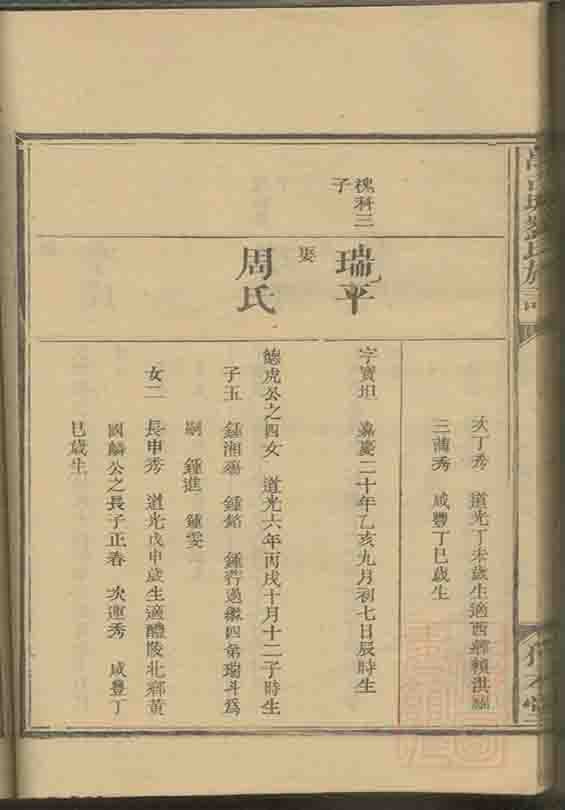 劉氏族譜
次丁秀　道光丁未歲生適西鄉賴洪
三蒲秀　咸豐丁巳歲生
槐科三
子
瑞平
字寶坦　嘉慶二十年乙亥九月初七日辰時生
娶
周氏
德虎公之四女　道光六年丙戌十月十二子時生
子五　鍾湘殤　鍾銘　鍾　過繼四弟瑞斗為
嗣　鍾進　鍾雯
女二　長申秀　道光戊申歲生適醴陵北鄉黃
國麟公之長子正春　次連秀　咸豐丁
巳歲生